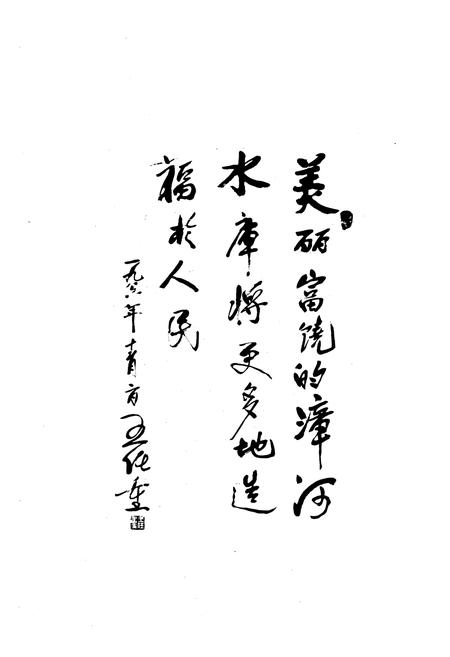 美丽富饶的漳河
水库将更多地造
福於人民
一九八六年十月
王任重